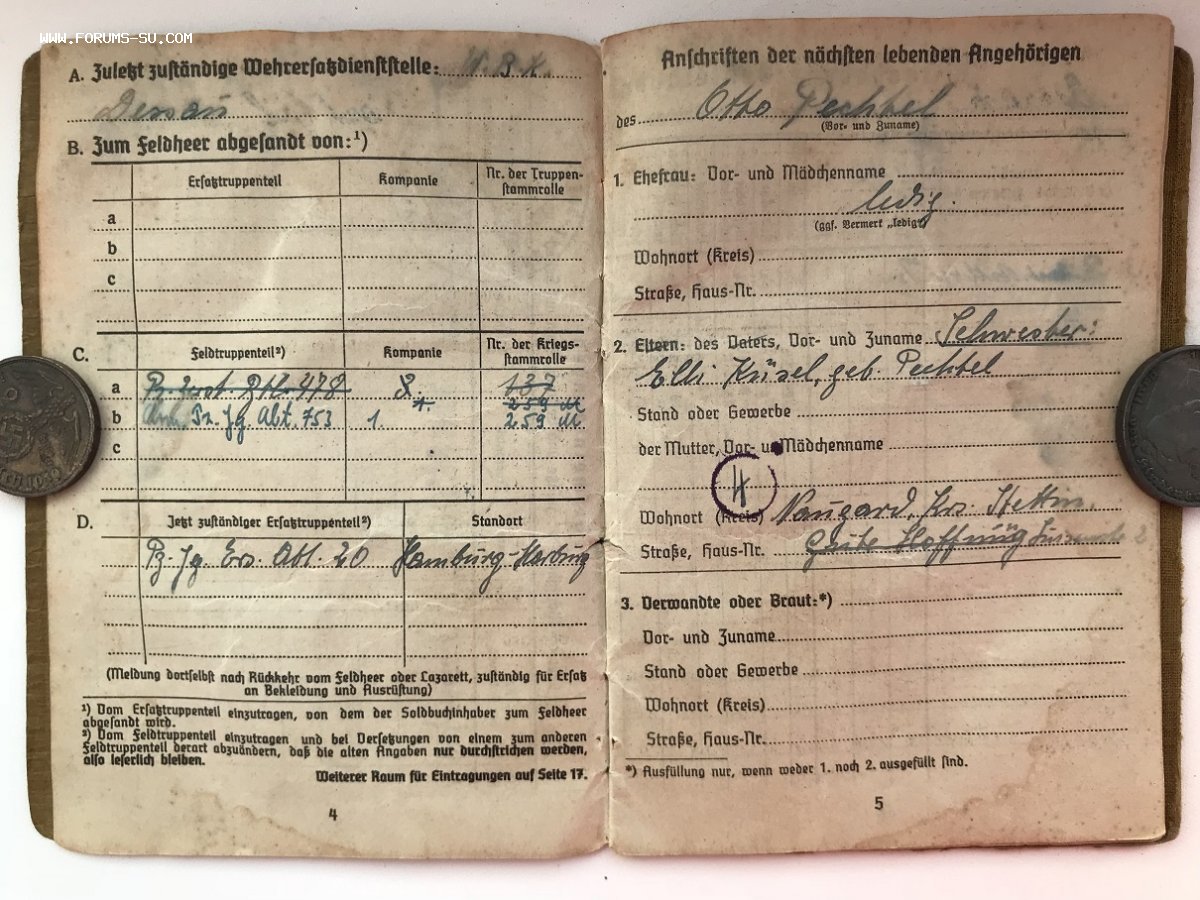 WWW.FORUMS-SU.COM
A. Zuletzt zuständige Wehrersatzdienststelle: W.B.K.
Dessau
B. Zum Feldheer abgesandt von:¹)
Ersatztruppenteil Kompanie Nr. der Truppen-
stammrolle
a
b
c
C. Feldtruppenteil²) Kompanie Nr. der Kriegs-
stammrolle
a Abt. 478 137
259 M
b Pz. Jg. Abt. 753 1. 259 M
c
D. Jetzt zuständiger Ersatztruppenteil²) Standort
Pz. Jg. Ers. Abt. 20 Hamburg-Harburg
(Meldung dortselbst nach Rückkehr vom Feldheer oder Lazarett, zuständig für Ersatz
an Bekleidung und Ausrüstung)
¹) Vom Ersatztruppenteil einzutragen, von dem der Soldbuchinhaber zum Feldheer
abgesandt wird.
²) Vom Feldtruppenteil einzutragen und bei Versetzungen von einem zum anderen
Feldtruppenteil derart abzuändern, daß die alten Angaben nur durchstrichen werden,
also leserlich bleiben.
Weiterer Raum für Eintragungen auf Seite 17.
4
Anschriften der nächsten lebenden Angehörigen
des Otto Pechbel
(Vor- und Zuname)
1. Ehefrau: Vor- und Mädchenname
ledig.
(ggf. Vermerk „ledig")
Wohnort (Kreis)
Straße, Haus-Nr.
2. Eltern: des Vaters, Vor- und Zuname Schwester:
Elli Küsel, geb. Pechbel
Stand oder Gewerbe
der Mutter, Vor- u. Mädchenname
4
Wohnort (Kreis) Naugard, Krs. Stettin.
Straße, Haus-Nr. Gute Hoffnung
3. Verwandte oder Braut:*)
Vor- und Zuname
Stand oder Gewerbe
Wohnort (Kreis)
Straße, Haus-Nr.
*) Ausfüllung nur, wenn weder 1. noch 2. ausgefüllt sind.
5